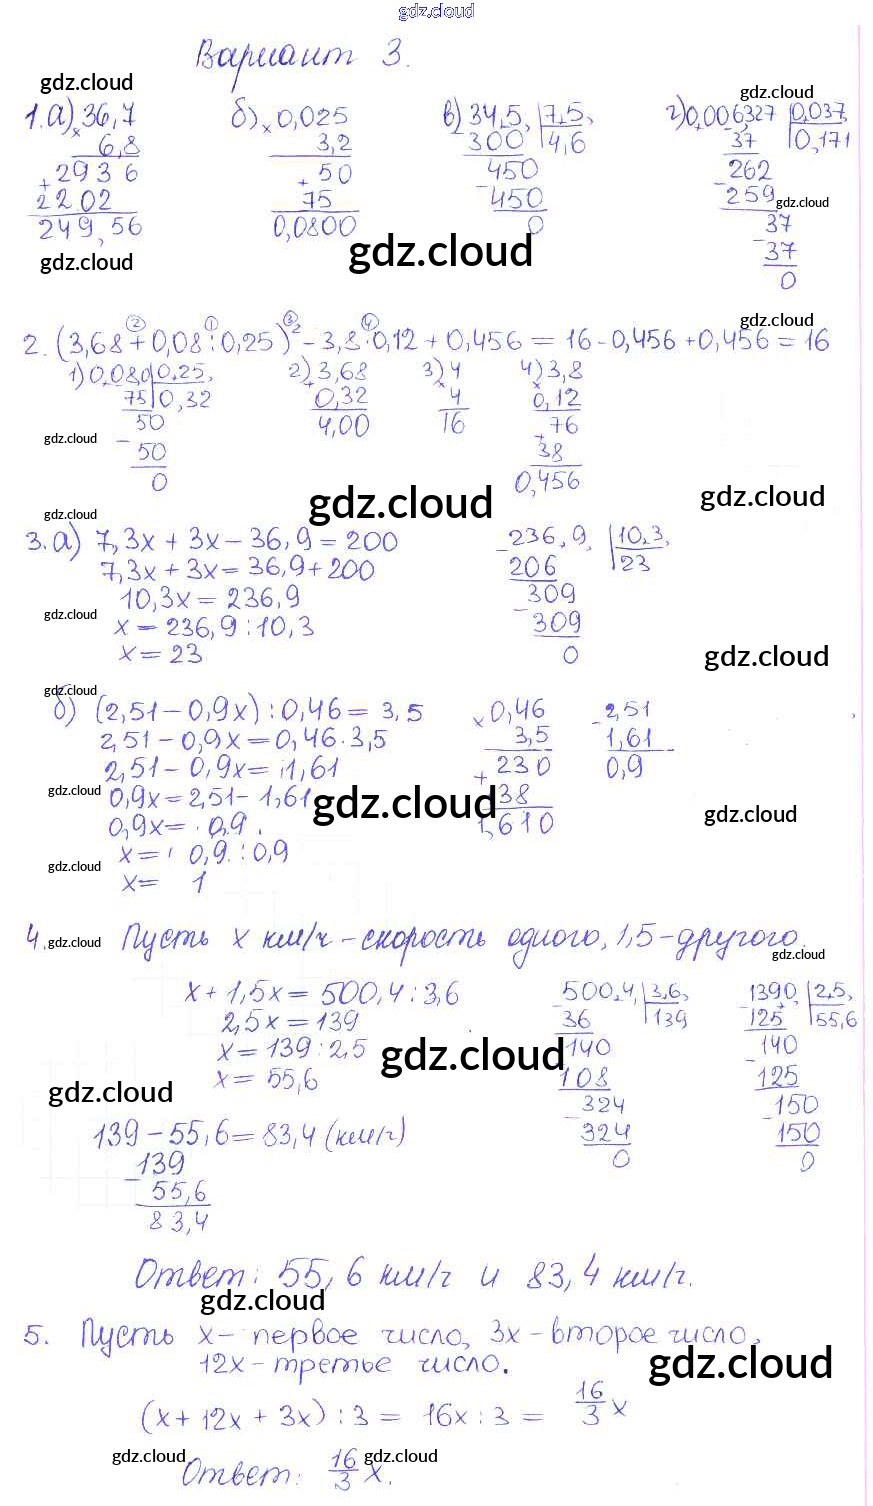 gdz.cloud
Вариант 3.
gdz.cloud
gdz.cloud
1.а) 36,7 б) 0,025 в) 34,5, | 7,5, г) 0,006,327 | 0,037,
× 6,8 × 3,2 300 | 4,6 37 | 0,171
+ 2936 + 50 450 262
2202 75 - 450 - 259 gdz.cloud
249,56 0,0800 0 37
gdz.cloud gdz.cloud - 37
0
② ① ③ ④ gdz.cloud
2. (3,68 + 0,08 : 0,25)² - 3,8 · 0,12 + 0,456 = 16 - 0,456 + 0,456 = 16
1) 0,08,0 | 0,25, 2) 3,68 3) 4 4) 3,8
75 | 0,32 + 0,32 × 4 × 0,12
50 4,00 16 76
gdz.cloud - 50 + 38
0 0,456
gdz.cloud gdz.cloud gdz.cloud
3. а) 7,3x + 3x - 36,9 = 200 - 236,9, | 10,3,
7,3x + 3x = 36,9 + 200 206 | 23
10,3x = 236,9 309
gdz.cloud x = 236,9 : 10,3 - 309
x = 23 0 gdz.cloud
gdz.cloud
б) (2,51 - 0,9x) : 0,46 = 3,5 × 0,46 - 2,51
2,51 - 0,9x = 0,46 · 3,5 3,5 1,61
2,51 - 0,9x = 1,61 + 230 0,9
gdz.cloud 0,9x = 2,51 - 1,61 gdz.cloud 138
0,9x = 0,9. 1,610 gdz.cloud
x = 0,9 : 0,9
gdz.cloud x = 1
4. gdz.cloud Пусть x км/ч - скорость одного, 1,5 - другого.
gdz.cloud
x + 1,5x = 500,4 : 3,6 - 500,4, | 3,6, - 1390, | 2,5,
2,5x = 139 36 | 139 125 | 55,6
x = 139 : 2,5 gdz.cloud - 140 - 140
x = 55,6 108 125
gdz.cloud 324 150
139 - 55,6 = 83,4 (км/ч) - 324 - 150
139 0 0
- 55,6
83,4
Ответ: 55,6 км/ч и 83,4 км/ч.
gdz.cloud
5. Пусть x - первое число, 3x - второе число,
12x - третье число. gdz.cloud
(x + 12x + 3x) : 3 = 16x : 3 = 16/3 x
gdz.cloud gdz.cloud
Ответ: 16/3 x.